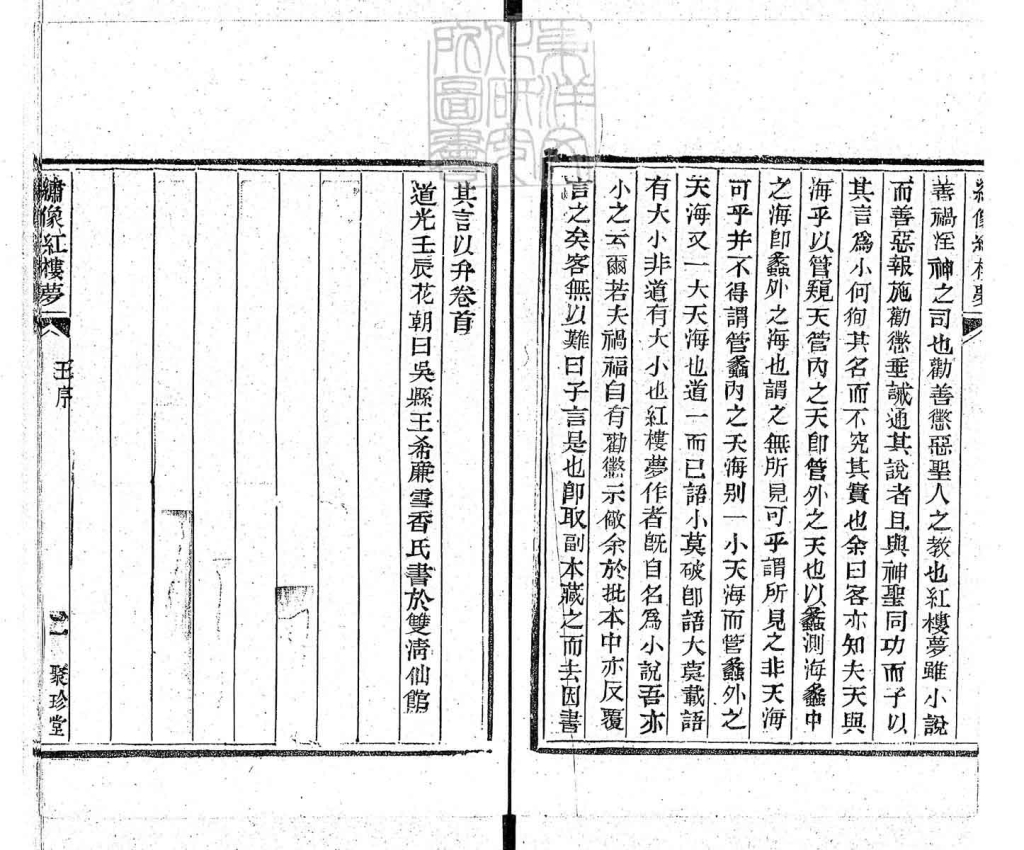 善禍淫神之司也勸善懲惡聖人之教也紅樓夢雖小說
而善惡報施勸懲垂誡通其說者且與神聖同功而子以
其言爲小何徇其名而不究其實也余曰客亦知夫天與
海乎以管窺天管內之天卽管外之天也以蠡測海蠡中
之海卽蠡外之海也謂之無所見可乎謂所見之非天海
可乎并不得謂管蠡內之天海別一小天海而管蠡外之
天海又一大天海也道一而已語小莫破卽語大莫載語
有大小非道有大小也紅樓夢作者旣自名爲小說吾亦
小之云爾若夫禍福自有勸懲示儆余於批本中亦反覆
言之矣客無以難曰子言是也卽取副本藏之而去因書
其言以弁卷首
道光壬辰花朝日吳縣王希廉雪香氏書於雙清仙館
繡像紅樓夢
王序
二
聚珍堂
東洋文
化研究
所圖書